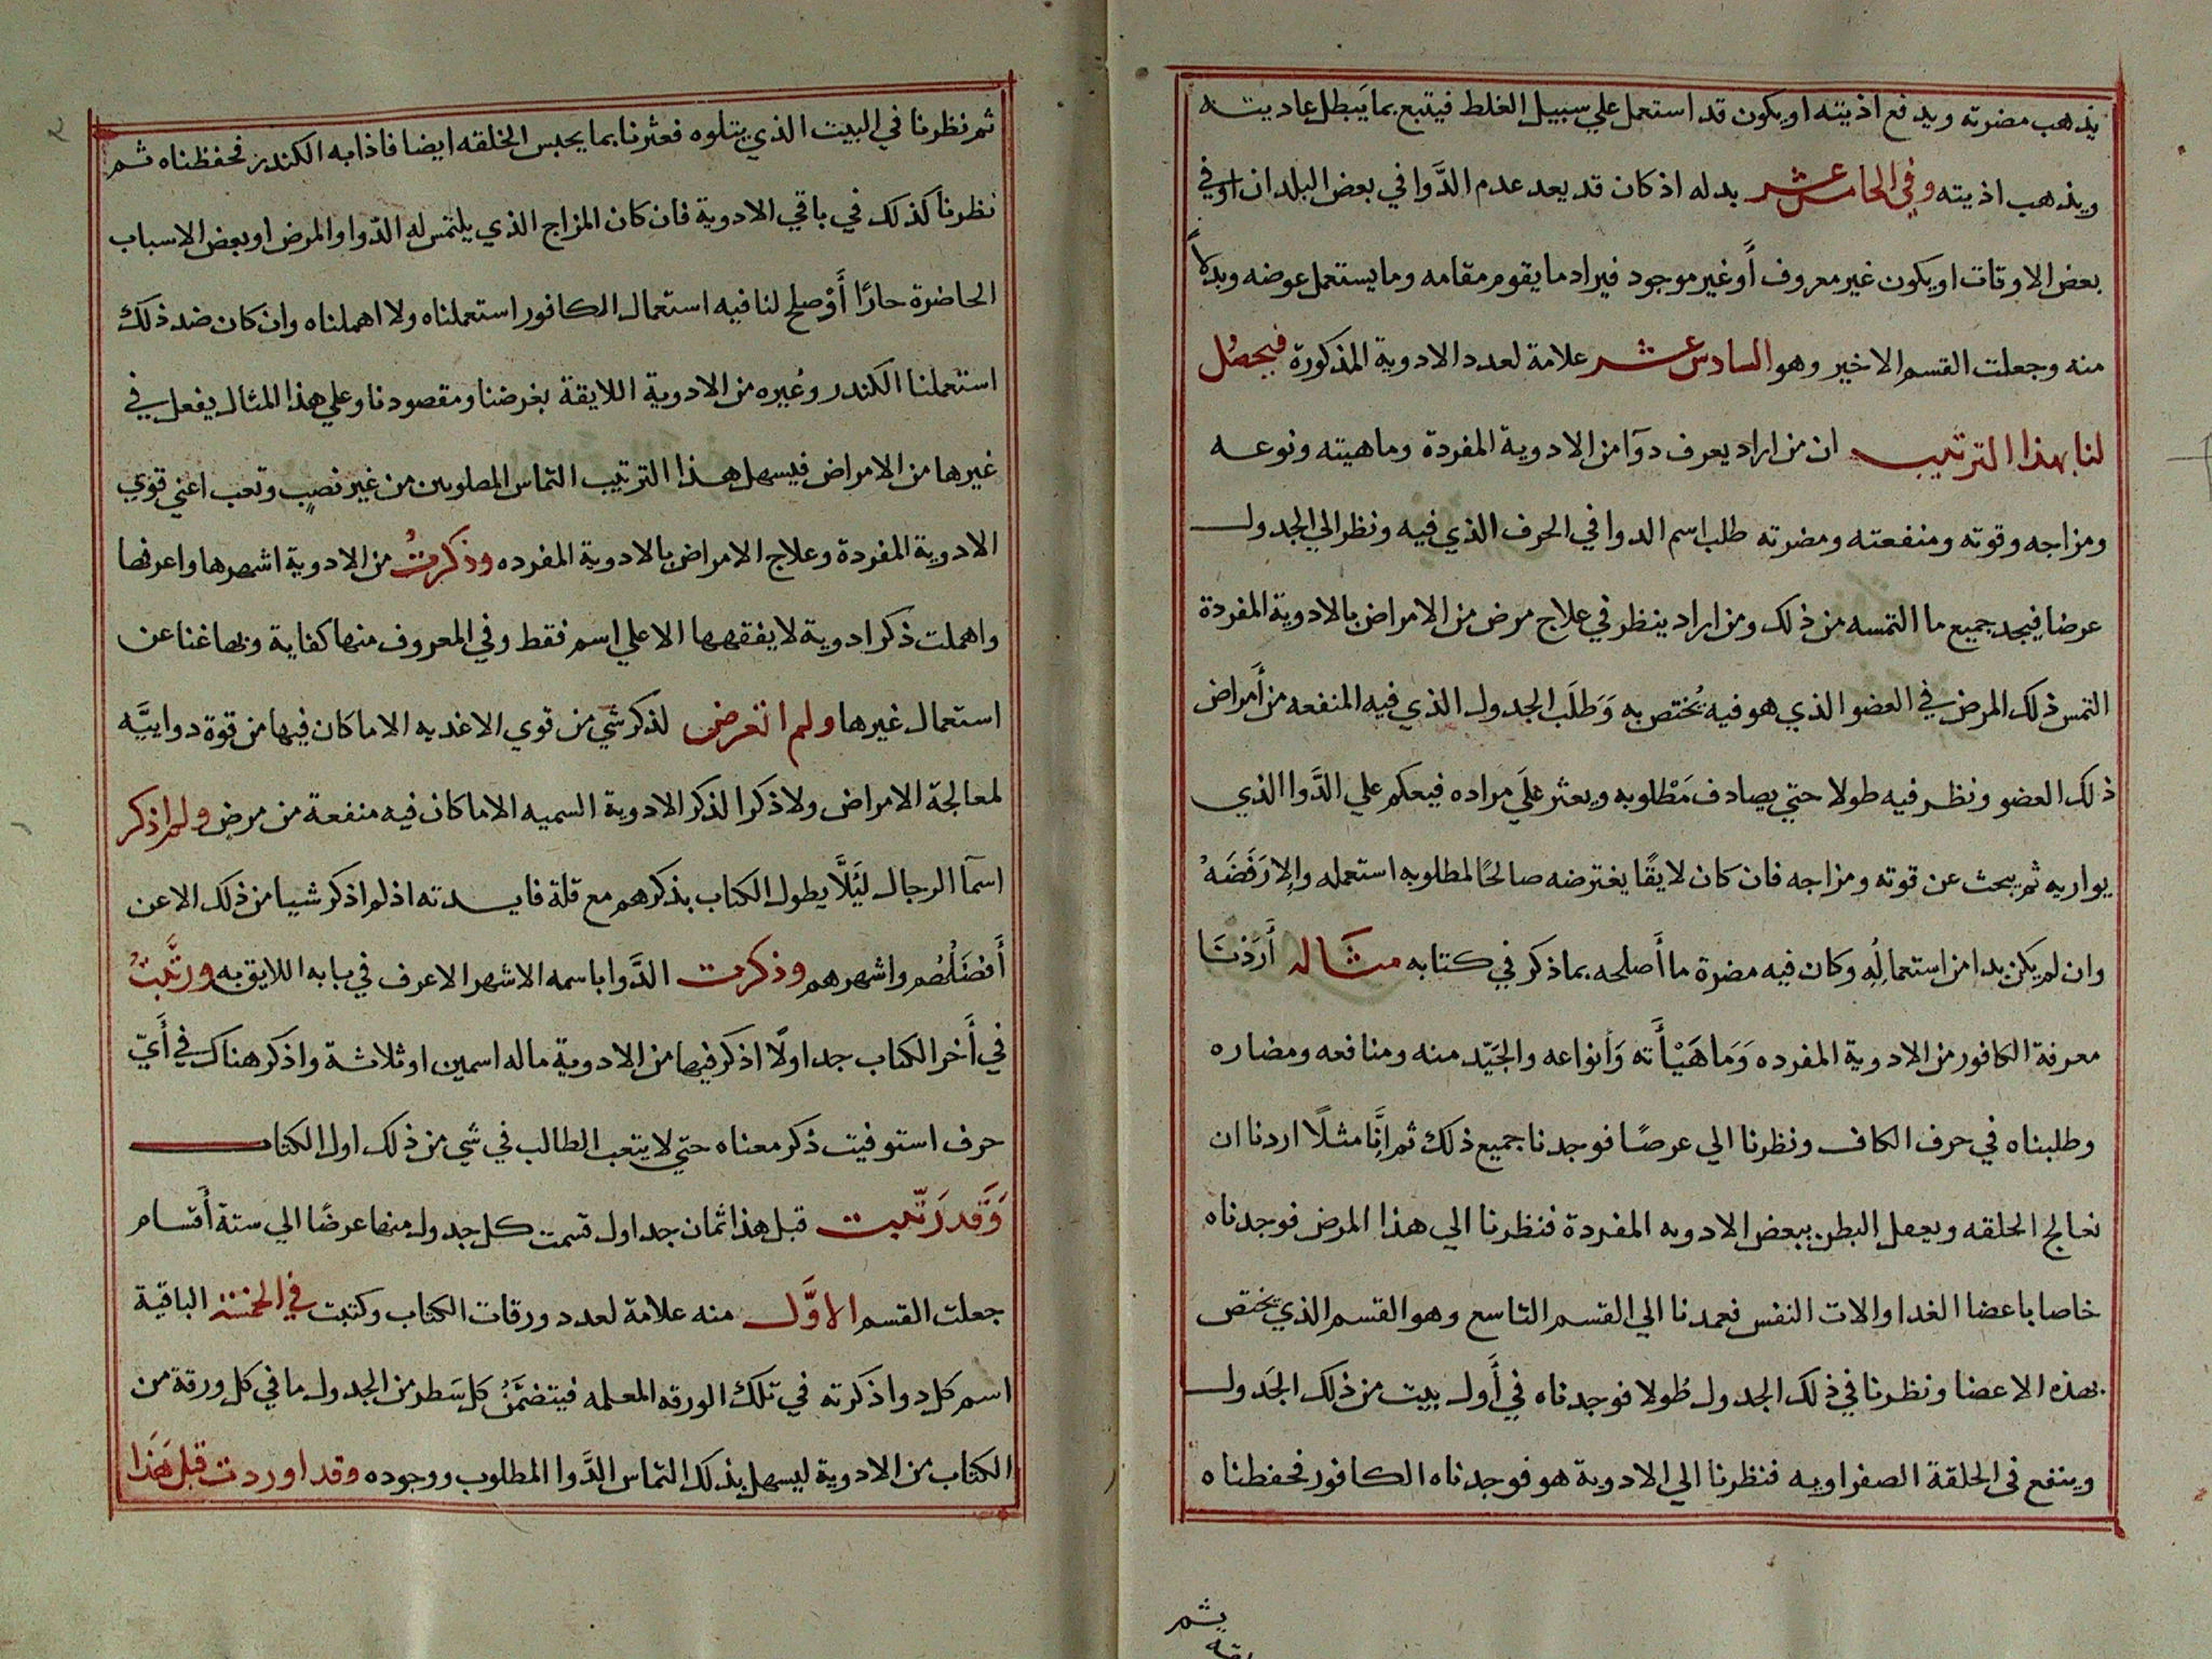 يذهب مضرته ويدفع اذيته او يكون قد استعمل علي سبيل الغلط فيتبع بما يَبطل عاديته
ويذهب اذيته وفي الخامس عشر بدله اذ كان قد يعد عدم الدَّوا في بعض البلدان اوفي
بعض الاوقات او يكون غير معروف أو غير موجود فيراد ما يقوم مقامه وما يستعمل عوضه وبدلاً
منه وجعلت القسم الاخير وهو السادس عشر علامة لعدد الادوية المذكورة فيحصُل
لنا بهذا الترتيب ان من اراد يعرف دوآ من الادوية المفردة وماهيته ونوعه
ومزاجه وقوته ومنفعته ومضرته طلب اسم الدوا في الحرف الذي فيه ونظر الي الجدول
عرضا فيجد جميع ما التمسه من ذلك ومن اراد ينظر في علاج مرض من الامراض بالادوية المفردة
التمس ذلك المرض في العضو الذي هو فيه يُختص به وَطلَب الجدول الذي فيه المنفعه من أمراض
ذلك العضو ونظر فيه طولا حتي يصادف مَطْلوبه ويعثر علَي مراده فيعكم علي الدَّوا الذي
يواريه ثم يبحث عن قوته ومزاجه فان كان لايقًا يغترضه صالحًا لمطلوبه استعمله وإلا رَفَضَهُ
وان لم يكن بدا من استعمالِهِ وكان فيه مضرة ما أصلحه بما ذكر في كتابه مثاله أَرَدْنَا
معرفة الكافور من الادوية المفرده وَمَاهَيْأَته وَأنواعه والجَيّد منه ومنافعه ومضاره
وطلبناه في حرف الكاف ونظرنا الي عرضًا فوجدنا جميع ذلك ثم إنَّا مثلًا اردنا ان
نعالج الخلقه ويعفل البطن ببعض الادويه المفردة فنظرنا الي هذا المرض فوجدناه
خاصا باعضا الغدا والات النفس فعمدنا الي القسم التاسع وهو القسم الذي يختص
بهذه الاعضا ونظرنا في ذلك الجدول طُولا فوجدناه في أول بيت من ذلك الجَدول
وينفع في الحلقة الصفراويه فنظرنا الي الادوية هو فوجدناه الكافور فحفظناه
ثم
ثم نظرنا في البيت الذي يتلوه فعثرنا بما يحبس الخلقه ايضا فاذا به الكندر فحفظناه ثم
نظرنا كذلك في باقي الادوية فان كان المزاج الذي يلتمس له الدّوا والمرض او بعض الاسباب
الحاضرة حارًا أوْ صلح لنا فيه استعمال الكافور استعملناه ولا اهملناه وان كان ضد ذلك
استعملنا الكندر وغيره من الادوية اللايقة بغرضنا ومقصودنا وعلي هذا المثال يفعل في
غيرها من الامراض فيسهل بهذا الترتيب التماس المطلوبين من غير نصبٍ وتعب اعني قوي
الادوية المفردة وعلاج الامراض بالادوية المفرده وذكرتُ من الادوية اشهرها واعرفها
واهملت ذكر ادوية لا يفقهها الا علي اسم فقط وفي المعروف منها كفاية وبها غنا عن
استعمال غيرها ولم اتعرض لذكر شي من قوي الاغديه الا ما كان فيها من قوة دواييَّه
لمعالجة الامراض ولا ذكرا لذكر الادوية السميه الا ما كان فيه منفعة من مرض ولم اذكر
اسمآ الرجال ليَلَّا يطول الكتاب بذكرهم مع قلة فايدته اذ لم اذكر شيا من ذلك الا عن
أَفضَلُهُم واشهرهم وذكرت الدَّوا باسمه الاشهر الاعرف في بابه اللايق به ورتَّبتُ
في أَخر الكتاب جداولًا اذكر فيها من الادوية ما له اسمين او ثلاثة واذكر هناك في أَيّ
حرف استوفيت ذكر معناه حتي لا يتعب الطالب في شي من ذلك اول الكتاب
وَقَد رَتّبت قبل هذا ثمان جداول قسمت كل جدول منها عرضًا الي ستة أَقسام
جعلت القسم الاوَّل منه علامة لعدد ورقات الكتاب وكتبت في الخمسة الباقية
اسم كل دوا ذكرته في تلك الورقه المعلمه فيتضمَّنُ كل سَطر من الجدول ما في كل ورقة من
الكتاب من الادوية ليسهل بذلك التماس الدَّوا المطلوب ووجوده وقد اوردت قبل هَذا